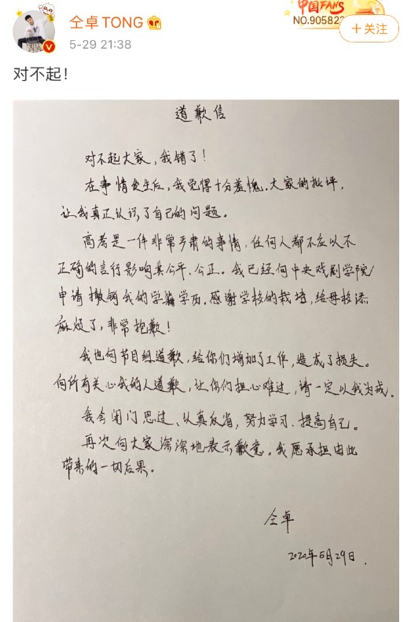 仝卓TONG
5-29 21:38
中国FANS
NO.905822
+关注
对不起！
道歉信
对不起大家，我错了！
在事情发生后，我觉得十分羞愧。大家的批评，
让我真正认识了自己的问题。
高考是一件非常严肃的事情，任何人都不应以不
正确的言行影响其公平、公正。我已经向中央戏剧学院
申请撤销我的学籍学历。感谢学校的栽培，给母校添
麻烦了，非常抱歉！
我也向节目组道歉，给你们增加了工作，造成了损失。
向所有关心我的人道歉，让你们担心难过，请一定以我为戒。
我会闭门思过、认真反省，努力学习、提高自己。
再次向大家深深地表示歉意。我愿承担由此
带来的一切后果。
仝卓
2020年5月29日.